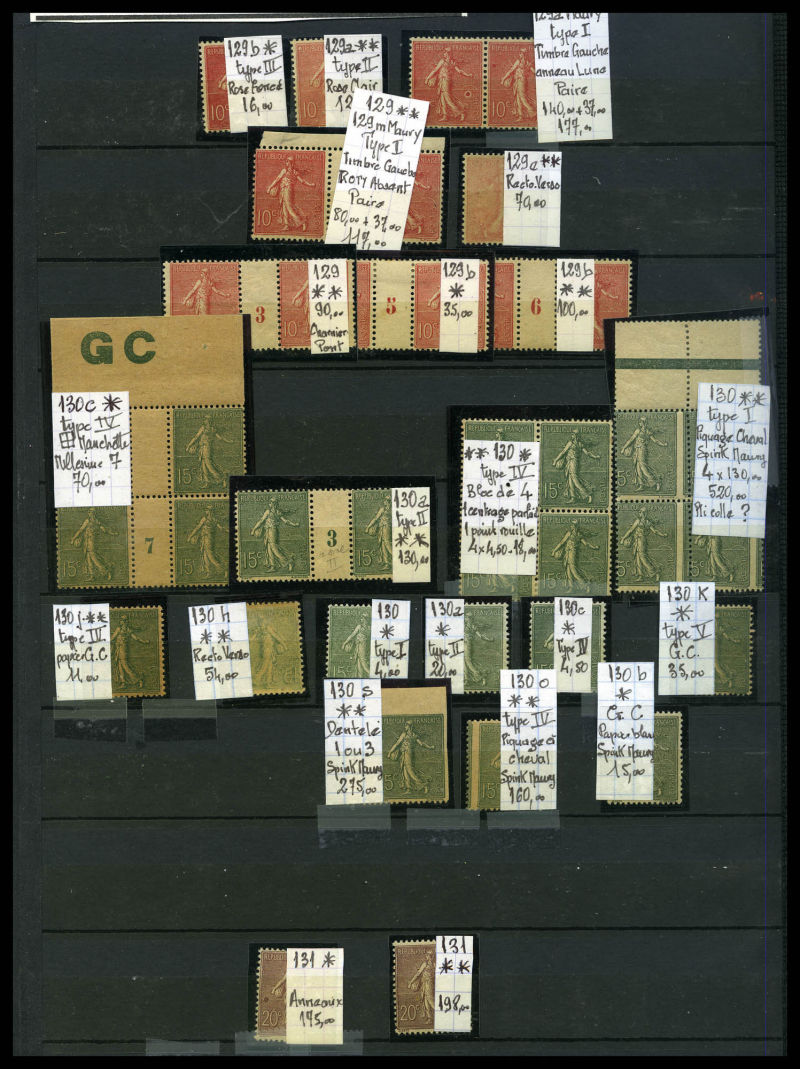 129b *
type III
Rose foncé
16,00
129a **
type II
Rose Clair
type I
Timbre Gauche
anneau Lune
Paire
140,00 + 37,00
177,00
129 **
129 m Maury
Type I
Timbre Gauche
ROTY Absent
Paire
80,00 + 37,00
117,00
129e **
Recto.Verso
70,00
129
**
90,00
Charnier
Pont
129b
*
35,00
129b
**
100,00
3
5
6
GC
130c *
type IV
Manchette
Millesime 7
70,00
7
130a
type II
**
130,00
3
** 130 *
type IV
Bloc de 4
1 centrage parfait
1 point rouille
4 x 4,50 - 18,00
130 **
type I
Piquage Cheval
Spink Maury
4 x 130,00
520,00
Pli colle ?
130 j **
type IV
papier G.C
11,00
130 h
**
Recto Verso
54,00
130
*
type I
4,00
130a
*
type II
20,00
130c
*
type IV
4,50
130 K
*
type V
G.C.
35,00
130 s
**
Dentelé
1 ou 3
Spink Maury
275,00
130 o
**
type IV
Piquage à
cheval
Spink Maury
160,00
130 b
*
G.C
Papier blanc
Spink Maury
15,00
131 *
Anneaux
175,00
131
**
198,00
REPUBLIQUE FRANÇAISE
10c
15c
20c